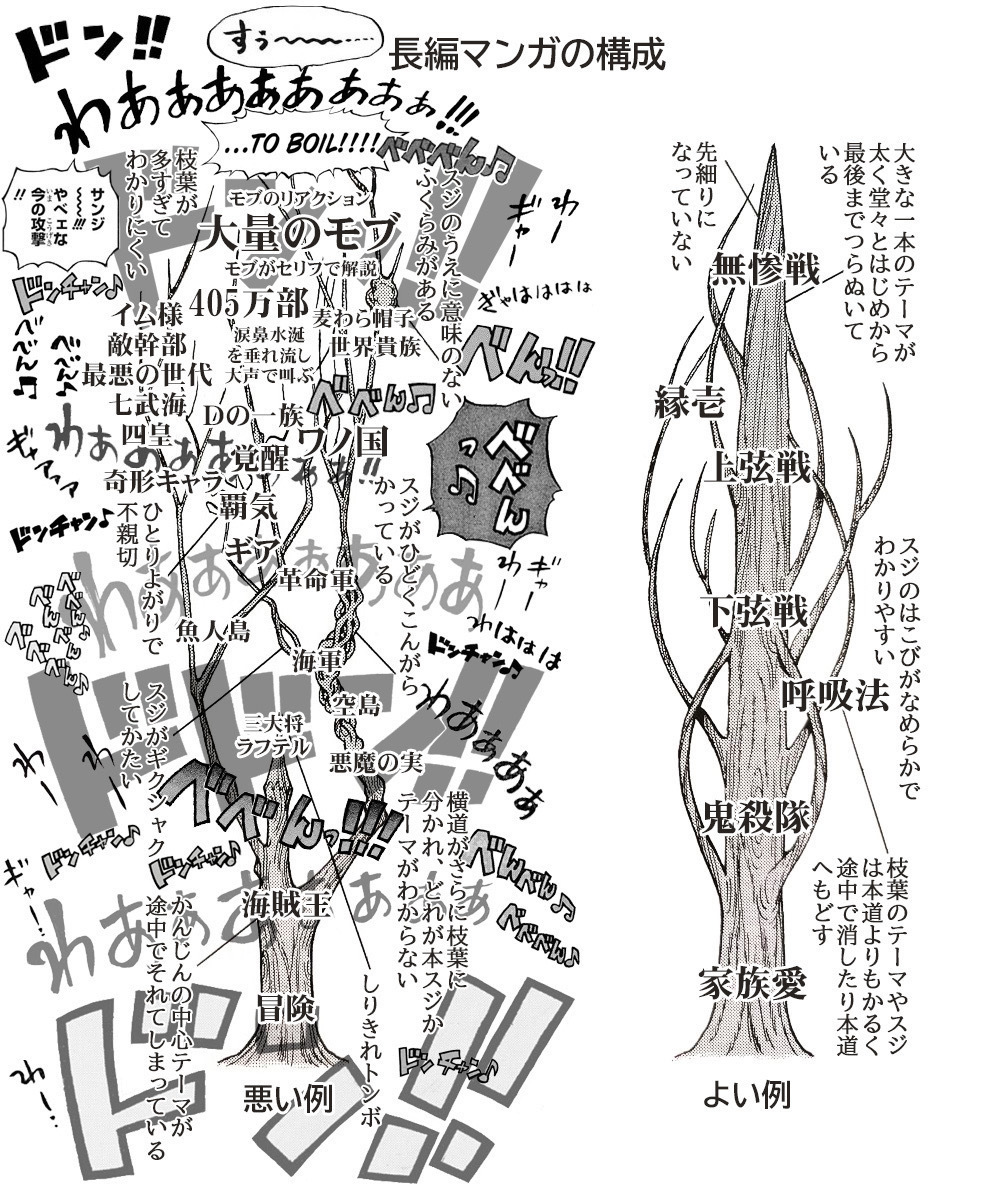 長編マンガの構成
ドン!!
すぅ〜〜〜〜……
わあぁぁあぁぁあぁぁ!!!
...TO BOIL!!!!
べべべん♫
枝葉が
多すぎて
わかりにくい
サンジ
〜〜〜!!!
やべェな
今の攻撃
いま
こうげき
!!
モブのリアクション
大量のモブ
モブがセリフで解説
405万部
涙鼻水涎
を垂れ流し
大声で叫ぶ
麦わら帽子
世界貴族
スジのうえに意味のない
ふくらみがある
わー
ギャー
ぎゃはははは
べんっ!!
ドンチャン♪
べべん♫
イム様
敵幹部
最悪の世代
七武海
四皇
奇形キャラ
Dの一族
覚醒
覇気
ギア
ワノ国
べべん
っ♫
ギャアァァ
ドンチャン♪
ひとりよがりで
不親切
スジがひどくこんがら
かっている
革命軍
魚人島
海軍
空島
三大将
ラフテル
悪魔の実
わー
ギャー
わははは
ドンチャン♫
わあぁぁぁ
ドン!!
スジがギクシャク
してかたい
わー
わー
べべんっ!!!
横道がさらに枝葉に
分かれ、どれが本スジか
テーマがわからない
ドンチャン♪
ドンチャン♪
ギャー…
べんべん♫
べべべん♪
海賊王
かんじんの中心テーマが
途中でそれてしまっている
しりきれトンボ
冒険
わー…
ドンチャン♫
ドン!!
悪い例
大きな一本のテーマが
太く堂々とはじめから
最後までつらぬいて
いる
先細りに
なっていない
無惨戦
縁壱
上弦戦
下弦戦
スジのはこびがなめらかで
わかりやすい
呼吸法
鬼殺隊
枝葉のテーマやスジ
は本道よりもかるく
途中で消したり本道
へもどす
家族愛
よい例